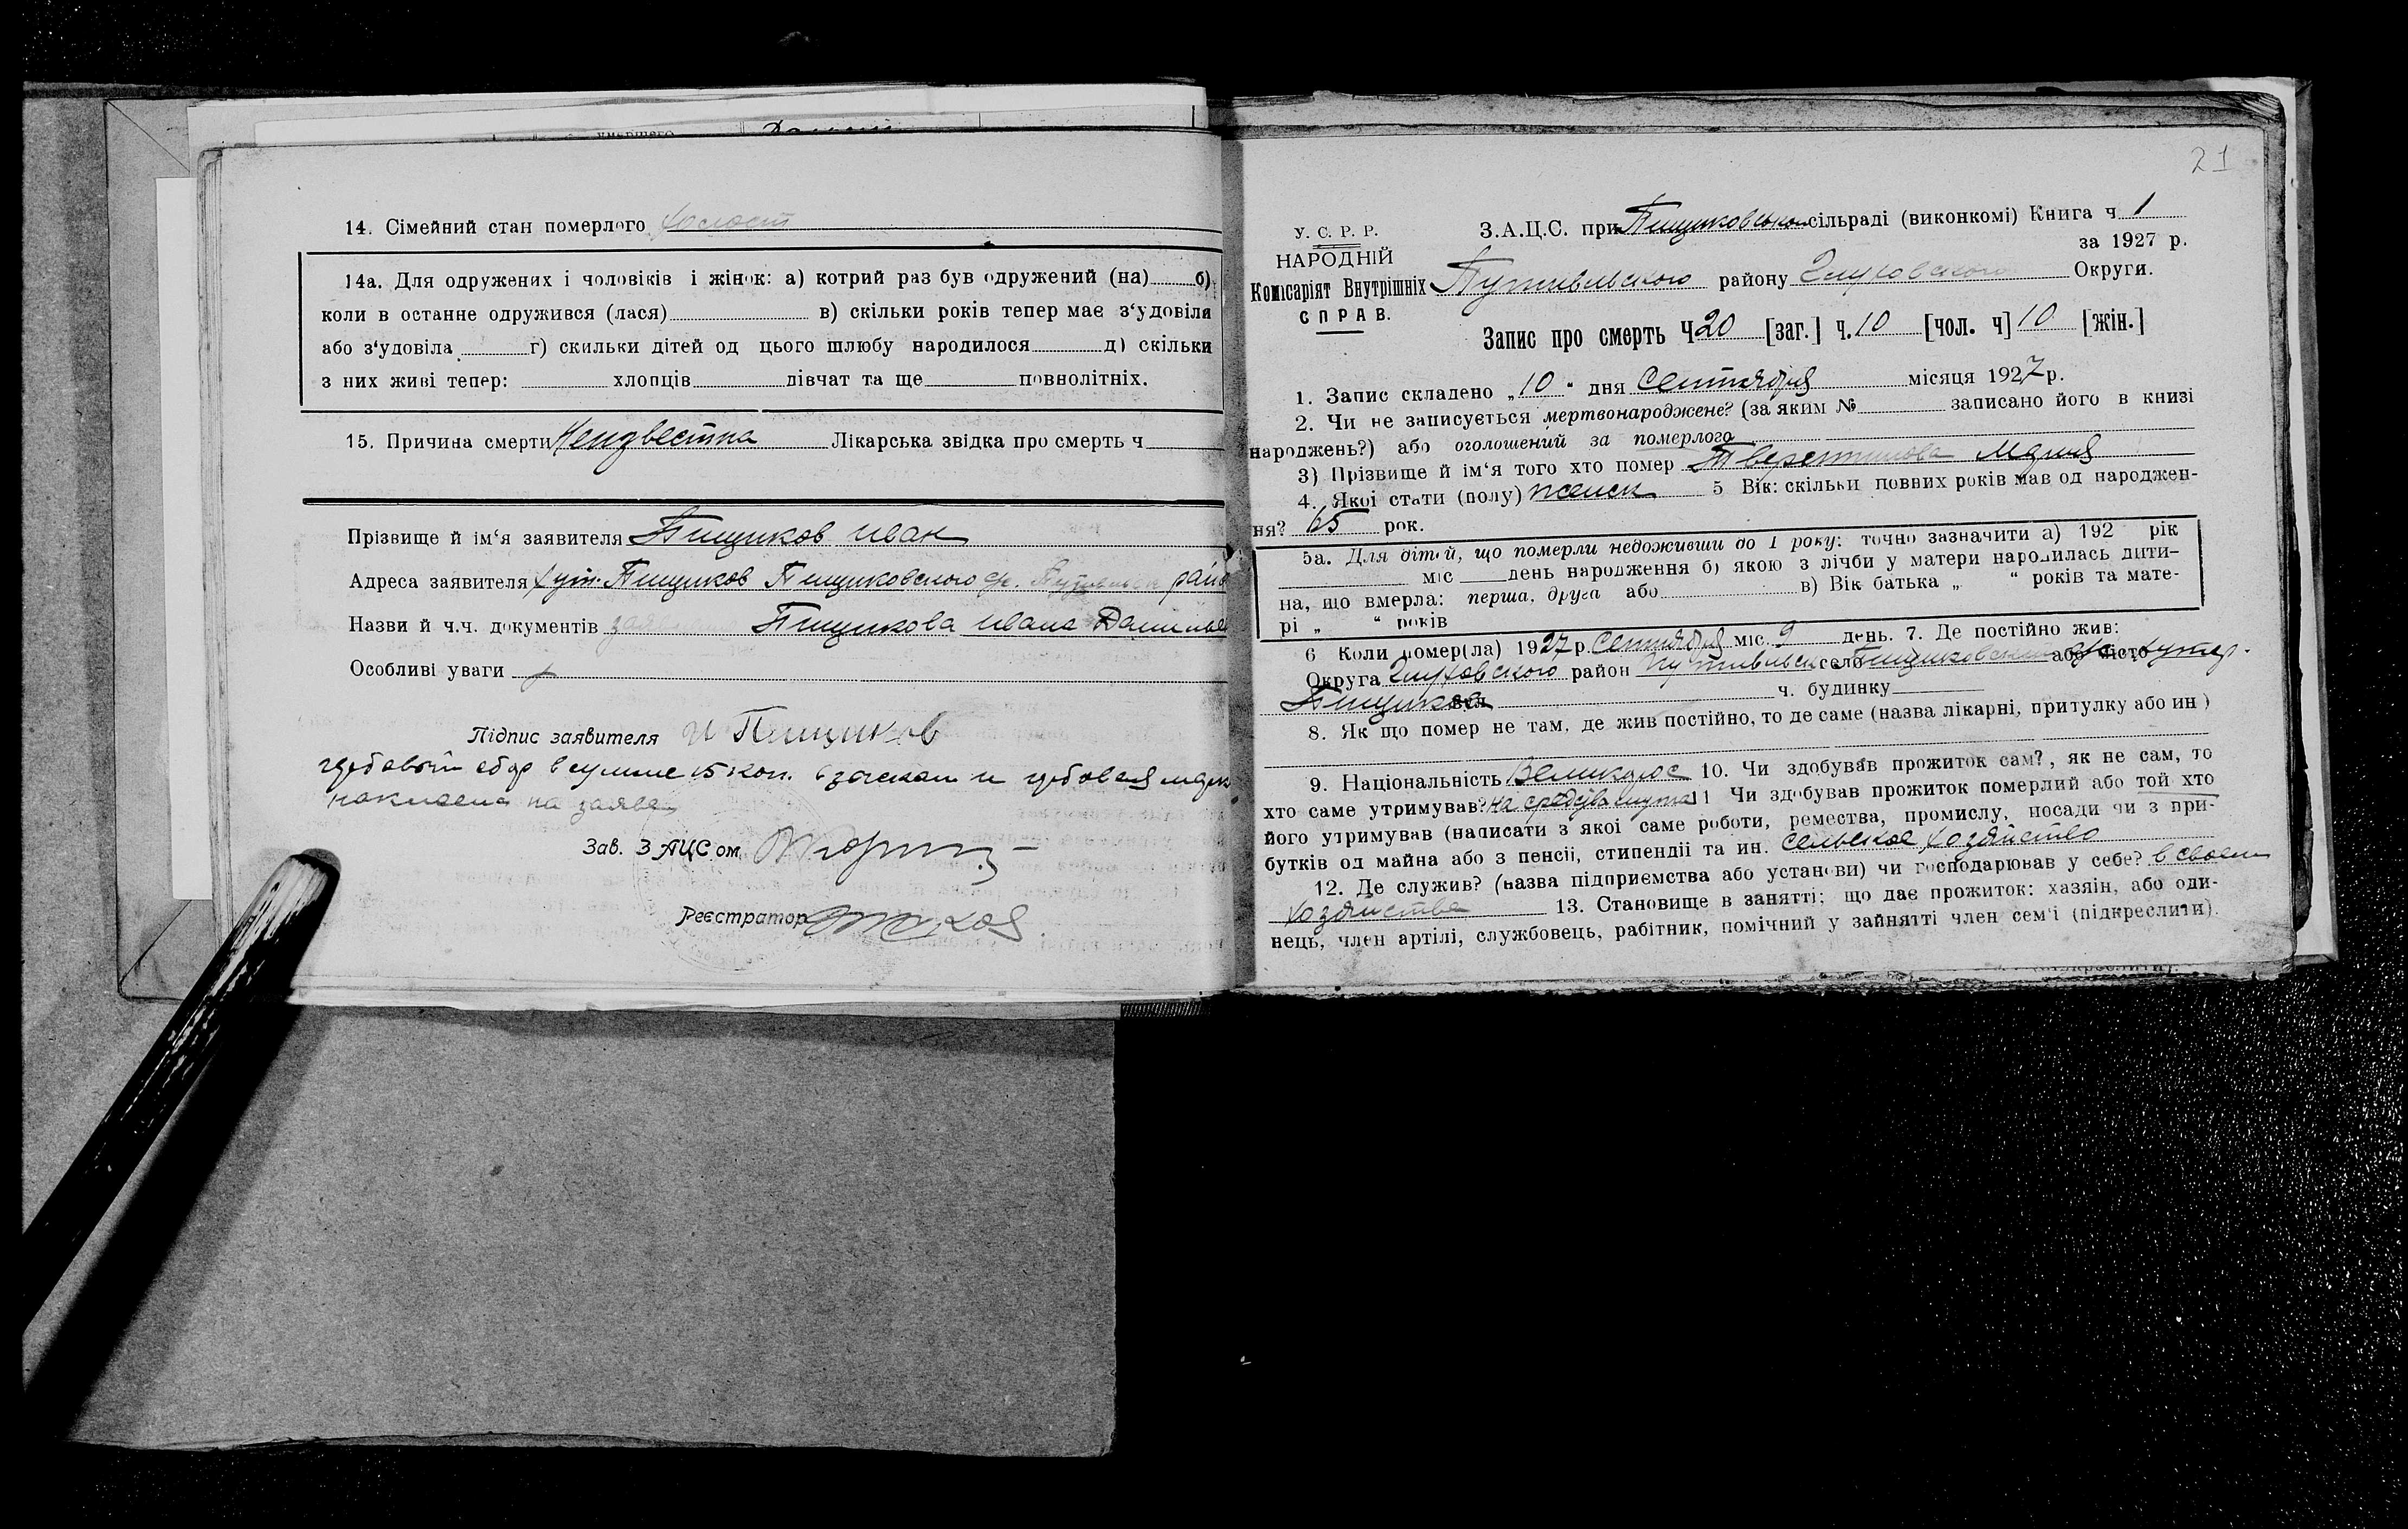 14. Сімейний стан померлого холост
14а. Для одружених і чоловіків і жінок: а) котрий раз був одружений (на) б)
коли в останне одружився (лася) в) скільки років тепер має з‘удовіля
або з‘удовіла г) скильки дітей од цього шлюбу народилося д) скільки
з них живі тепер: хлопців дівчат та ще повнолітніх.
15. Причина смерти Неизвестна Лікарська звідка про смерть ч
Прізвище й ім‘я заявителя Пищиков Иван
Адреса заявителя хут. Пищиков Пищиковского с/с. Путивльск райо
Назви й ч.ч. документів заявл Пищикова Ивана
Особливі уваги
Підпис заявителя И Пищиков
гербовый сбор в сумме 15 коп. взыскан и гербовая марк
наклеена на заявл
Зав. ЗАЦС ом
Реєстратор
21
У. С. Р. Р.
НАРОДНІЙ
Комісаріят Внутрішніх
СПРАВ.
З.А.Ц.С. при Пищиковском сільраді (виконкомі) Книга ч 1
за 1927 р.
Путивльского району Глуховского Округи.
Запис про смерть Ч 20 [заг.] ч. 10 [чол. ч] 10 [жін.]
1. Запис складено „10“ дня Сентября місяця 1927 р.
2. Чи не записується мертвонароджене? (за яким № записано його в книзі
народжень?) або оголошений за померлого
3) Прізвище й ім‘я того хто помер Мария
4. Якої стати (полу) женск 5 Вік: скільки повних років мав од народжен-
ня? 65 рок.
5а. Для дітей, що померли недоживши до 1 року: точно зазначити а) 192 рік
міс день народження б) якою з лічби у матери народилась дити-
на, що вмерла: перша, друга або в) Вік батька „ “ років та мате-
рі „ “ років
6 Коли помер(ла) 1927 р. Сентября міс. 9 день. 7. Де постійно жив:
Округа Глуховского район Путивльск село Пищиковский або місто хутор.
Пищиков вул ч. будинку
8. Як що помер не там, де жив постійно, то де саме (назва лікарні, притулку або ин)
9. Національність Великорос 10. Чи здобував прожиток сам?, як не сам, то
хто саме утримував? на средства мужа 11 Чи здобував прожиток померлий або той хто
його утримував (написати з якої саме роботи, ремества, промислу, посади чи з при-
бутків од майна або з пенсії, стипендії та ин. Сельское хозяйство
12. Де служив? (назва підприємства або установи) чи господарював у себе? в своем
хозяйстве 13. Становище в занятті; що дає прожиток: хазяін, або оди-
нець, член артілі, службовець, рабітник, помічний у зайнятті член сем‘і (підкреслити).